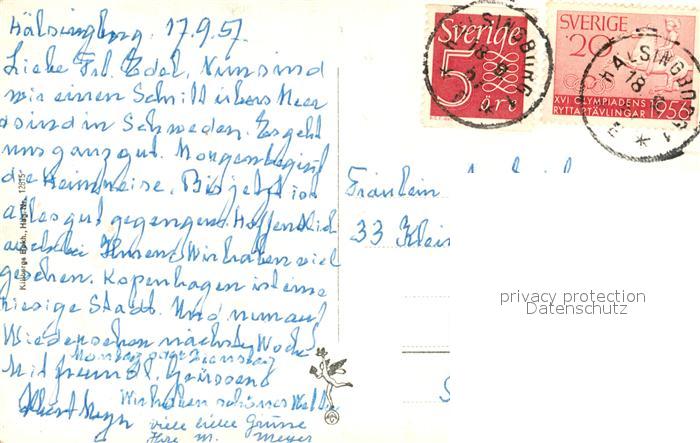 Hälsingborg, 17.9.57.
Liebe Frl. Edel, Nun sind
wir einen Schritt übers Meer
und sind in Schweden. Es geht
uns ganz gut. Morgen beginnt
die Heimreise. Bis jetzt ist
alles gut gegangen. Hoffentlich
auch bei Ihnen. Wir haben viel
gesehen. Kopenhagen ist eine
riesige Stadt. Und nun auf
Wiedersehen nächste Woche
Montag oder Dienstag
Mit freundl. Grüssen
Wir haben schönes Wetter
viele liebe Grüsse
Ihre M. Meyer
Sverige
5
öre
HÄLSINGBORG 1
18. 9.
SVERIGE
20
XVI OLYMPIADENS
RYTTARTÄVLINGAR 1956
HÄLSINGBORG 1
18. 9.
Fräulein
33 Klei
privacy protection
Datenschutz